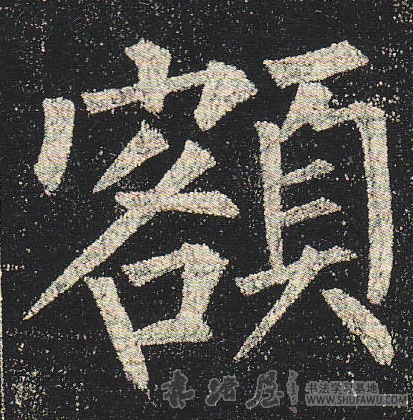 額
书法学习基地
WWW.SHUFAWU.COM